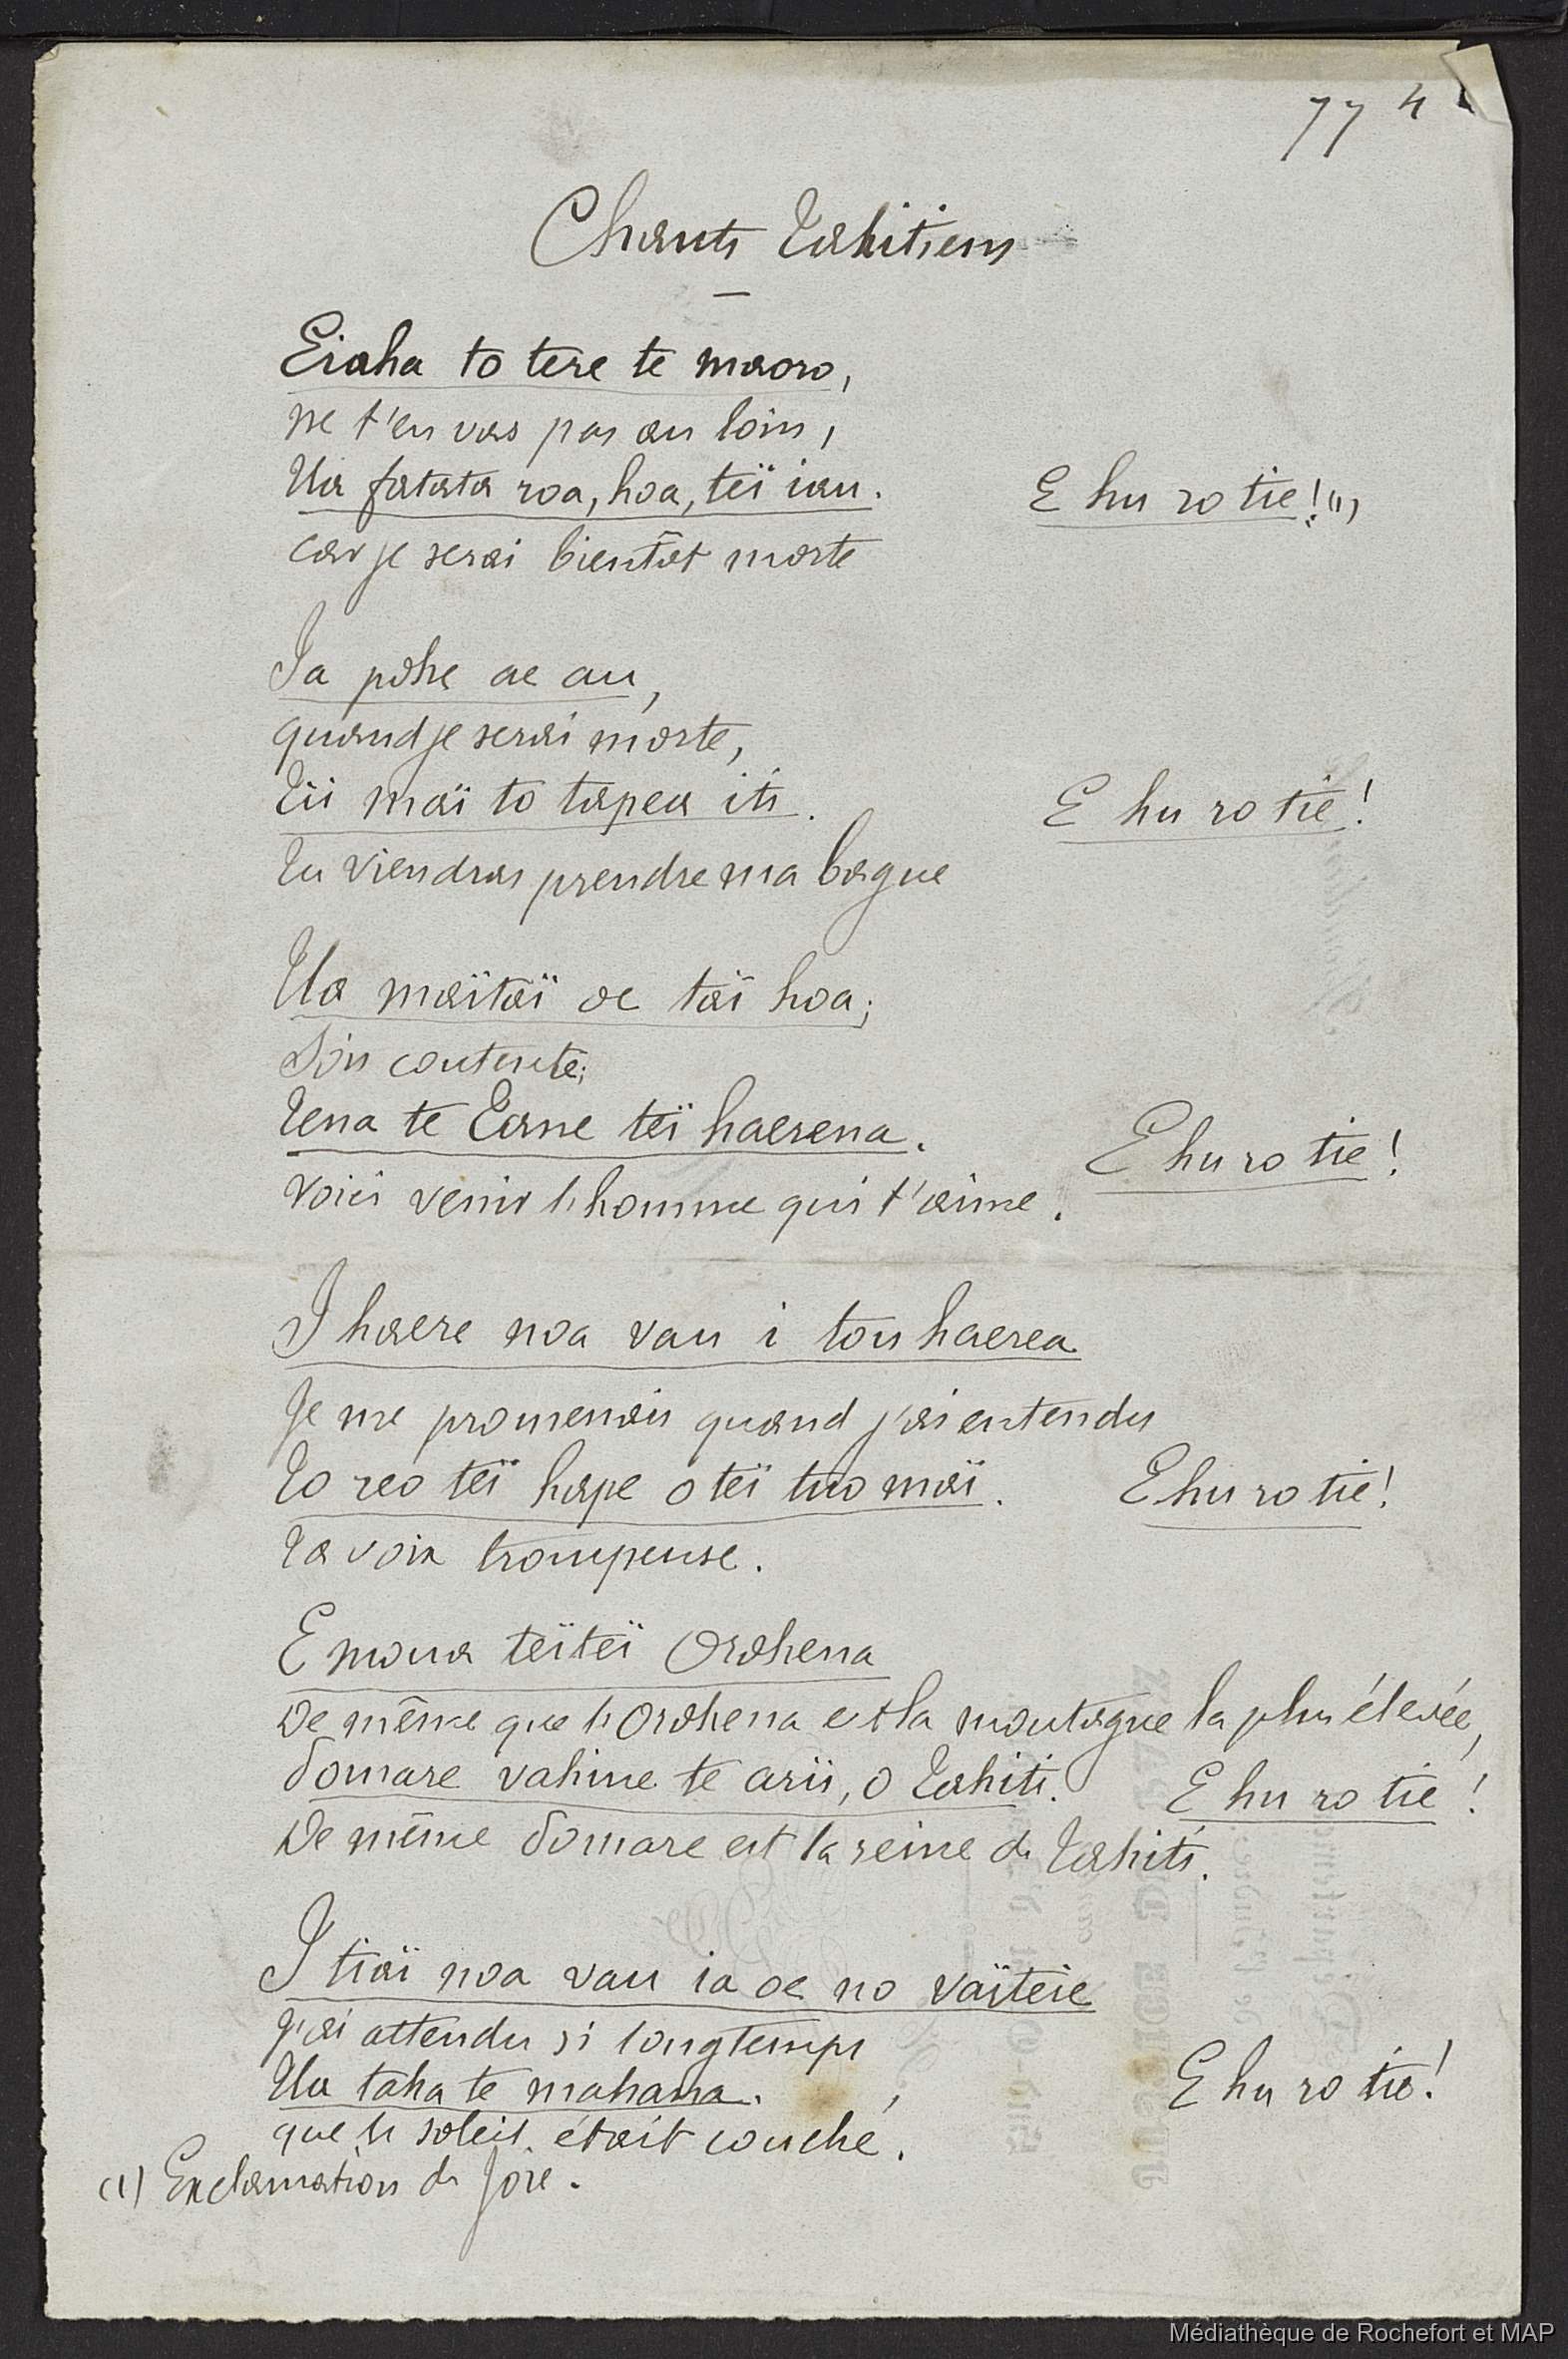 77 4
Chants Tahitiens
Eiaha to tere te maoro,
ne t'en vas pas au loin,
Ua fatata roa, hoa, teï iau. E hu ro tie! (1)
car je serai bientôt morte
Ia pohe ae au,
quand je serai morte,
Tii maï to tapea iti. E hu ro tie!
Tu viendras prendre ma bague
Ua maïtaï oe taï hoa;
Sois contente;
Tena te Tane teï haerena. E hu ro tie!
Voici venir l'homme qui t'aime.
I haere noa vau i tou haerea
Je me promenais quand j'ai entendu
To reo teï hape o teï tuo maï. E hu ro tie!
Ta voix trompeuse.
E moua teïteï Orohena
De même que l'Orohena est la montagne la plus élevée,
Pomare vahine te arii, o Tahiti. E hu ro tie!
De même Pomare est la reine de Tahiti.
I tiaï noa vau ia oe no vaïteie
J'ai attendu si longtemps
Ua taha te mahana. E hu ro tie!
que le soleil était couché.
(1) Exclamation de joie.
Médiathèque de Rochefort et MAP